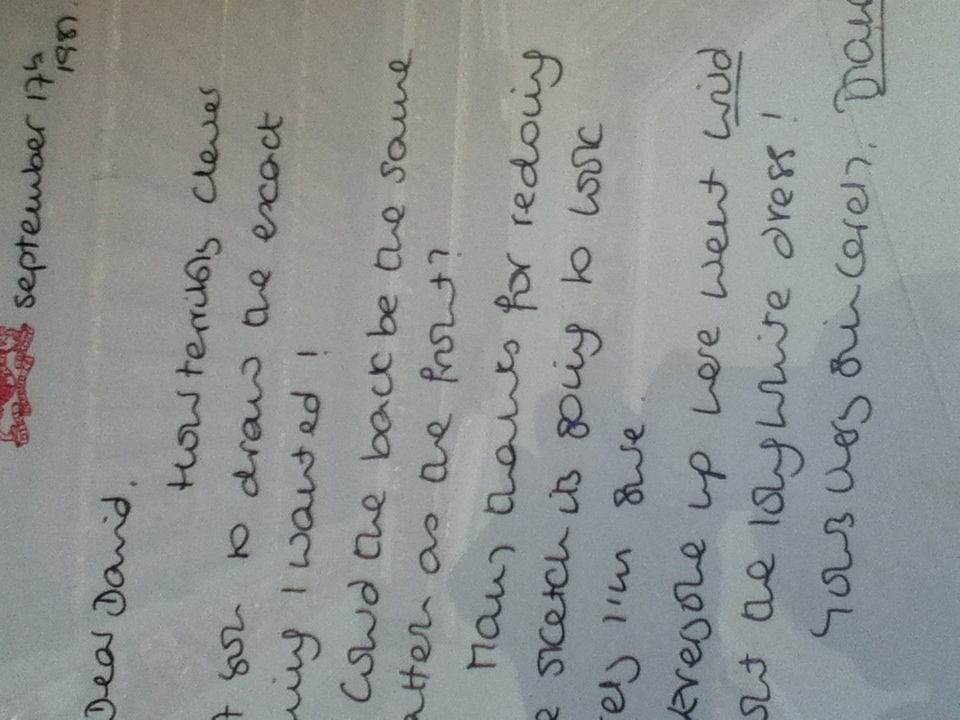 September 17th
1981.
Dear David,
How terribly clever
of you to draw the exact
thing I wanted!
Could the back be the same
pattern as the front?
Many thanks for redoing
the sketch it is going to look
lovely I'm sure.
Everyone up here went wild
about the long white dress!
Yours very sincerely,